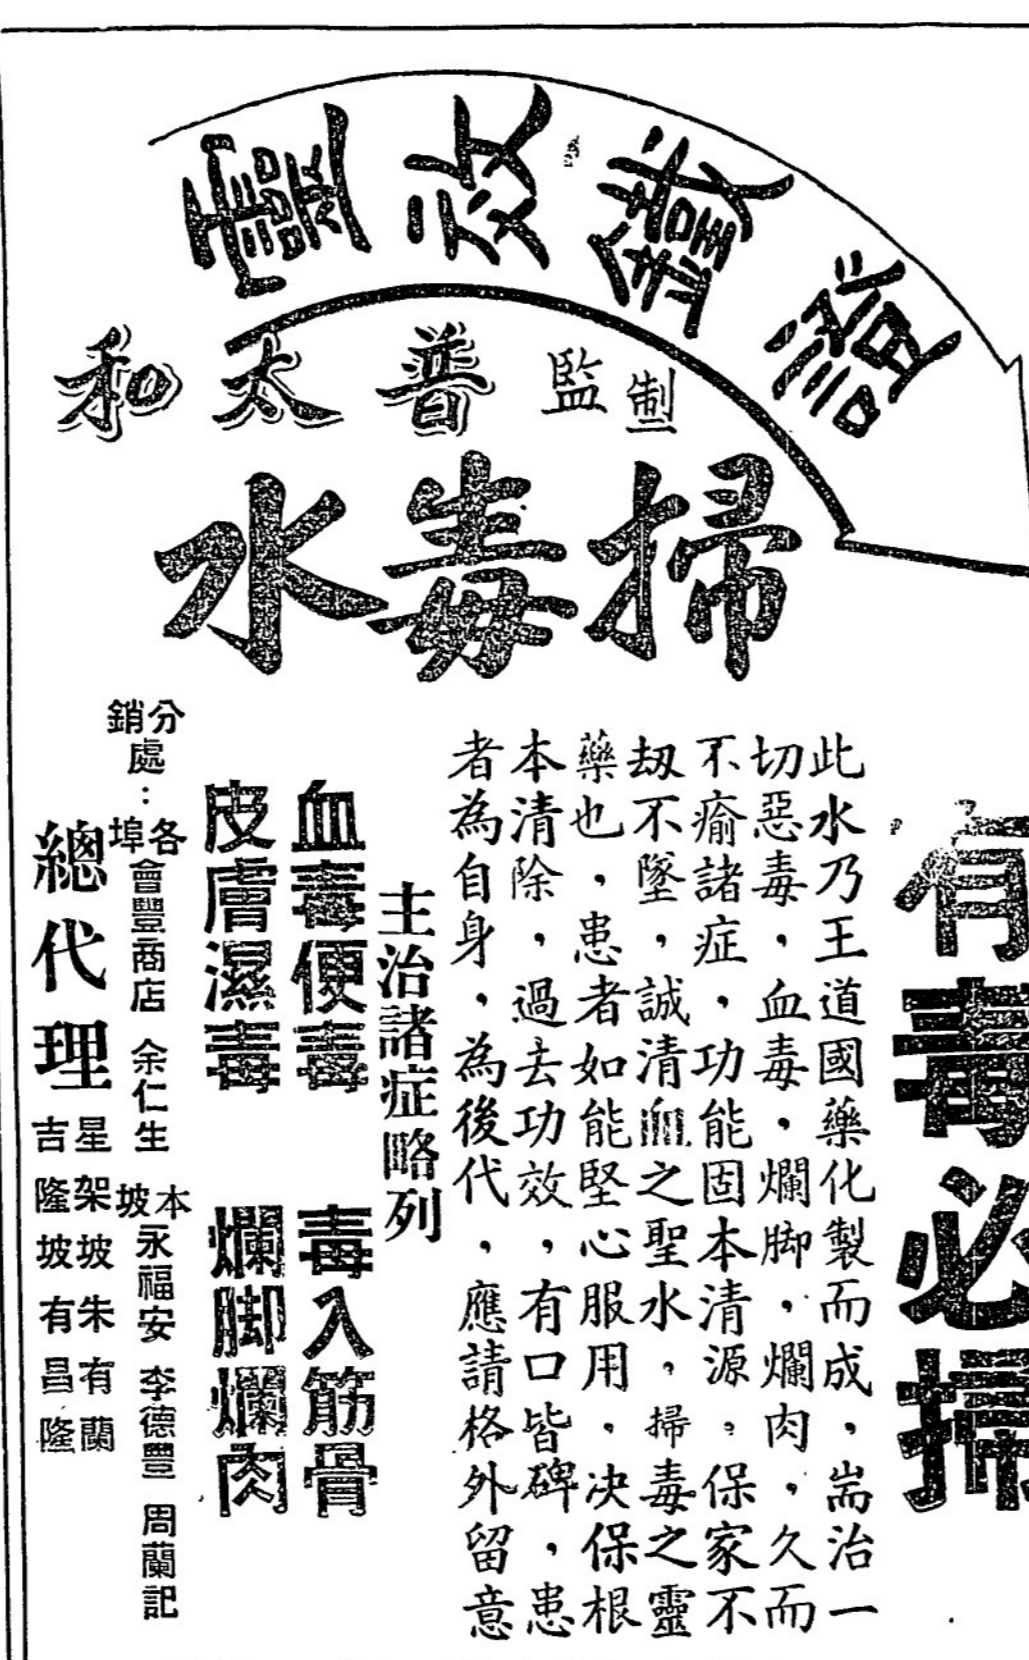 普太和監製
掃毒水
有毒必掃
此水乃王道國藥化製而成，耑治一
切惡毒，血毒，爛脚，爛肉，久而
不瘉諸症，功能固本清源。保家不
刼不墜，誠清血之聖水，掃毒之靈
藥也，患者如能堅心服用，决保根
本清除，過去功效，有口皆碑，患
者為自身，為後代，應請格外留意
主治諸症略列
血毒便毒 毒入筋骨
皮膚濕毒 爛脚爛肉
分銷處：各埠會豐商店 余仁生 本坡永福安 李德豐 周蘭記
總代理
星架坡朱有蘭
吉隆坡有昌隆